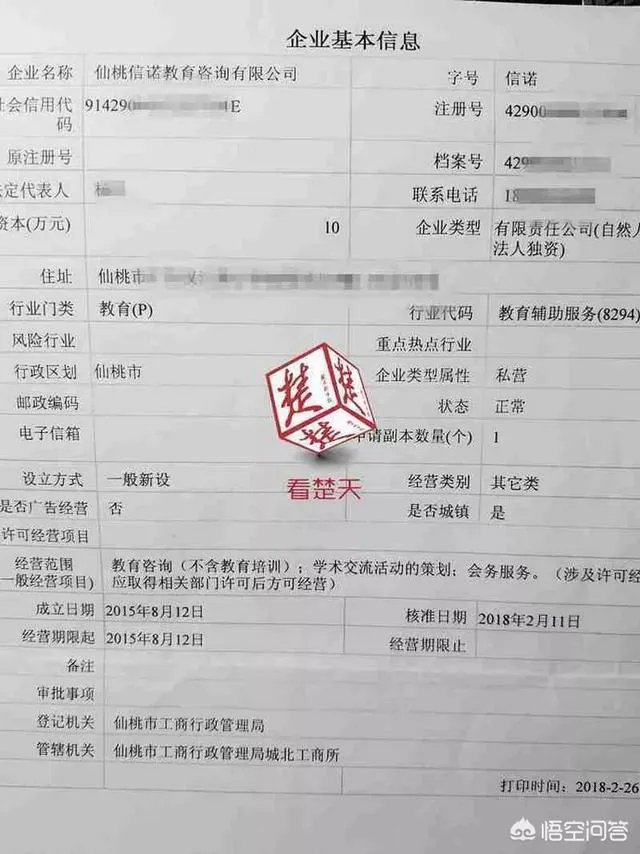 企业基本信息
企业名称 仙桃信诺教育咨询有限公司 字号 信诺
社会信用代码 914290 E 注册号 42900
原注册号 档案号 429
法定代表人 杨 联系电话 18
资本(万元) 10 企业类型 有限责任公司(自然人
法人独资)
住址 仙桃市
行业门类 教育(P) 行业代码 教育辅助服务(8294)
风险行业 重点热点行业
行政区划 仙桃市 企业类型属性 私营
邮政编码 状态 正常
电子信箱 申请副本数量(个) 1
看楚天
设立方式 一般新设 经营类别 其它类
是否广告经营 否 是否城镇 是
许可经营项目
经营范围 教育咨询（不含教育培训）；学术交流活动的策划；会务服务。（涉及许可经
一般经营项目) 应取得相关部门许可后方可经营）
成立日期 2015年8月12日 核准日期 2018年2月11日
经营期限起 2015年8月12日 经营期限止
备注
审批事项
登记机关 仙桃市工商行政管理局
管辖机关 仙桃市工商行政管理局城北工商所
打印时间：2018-2-26
悟空问答